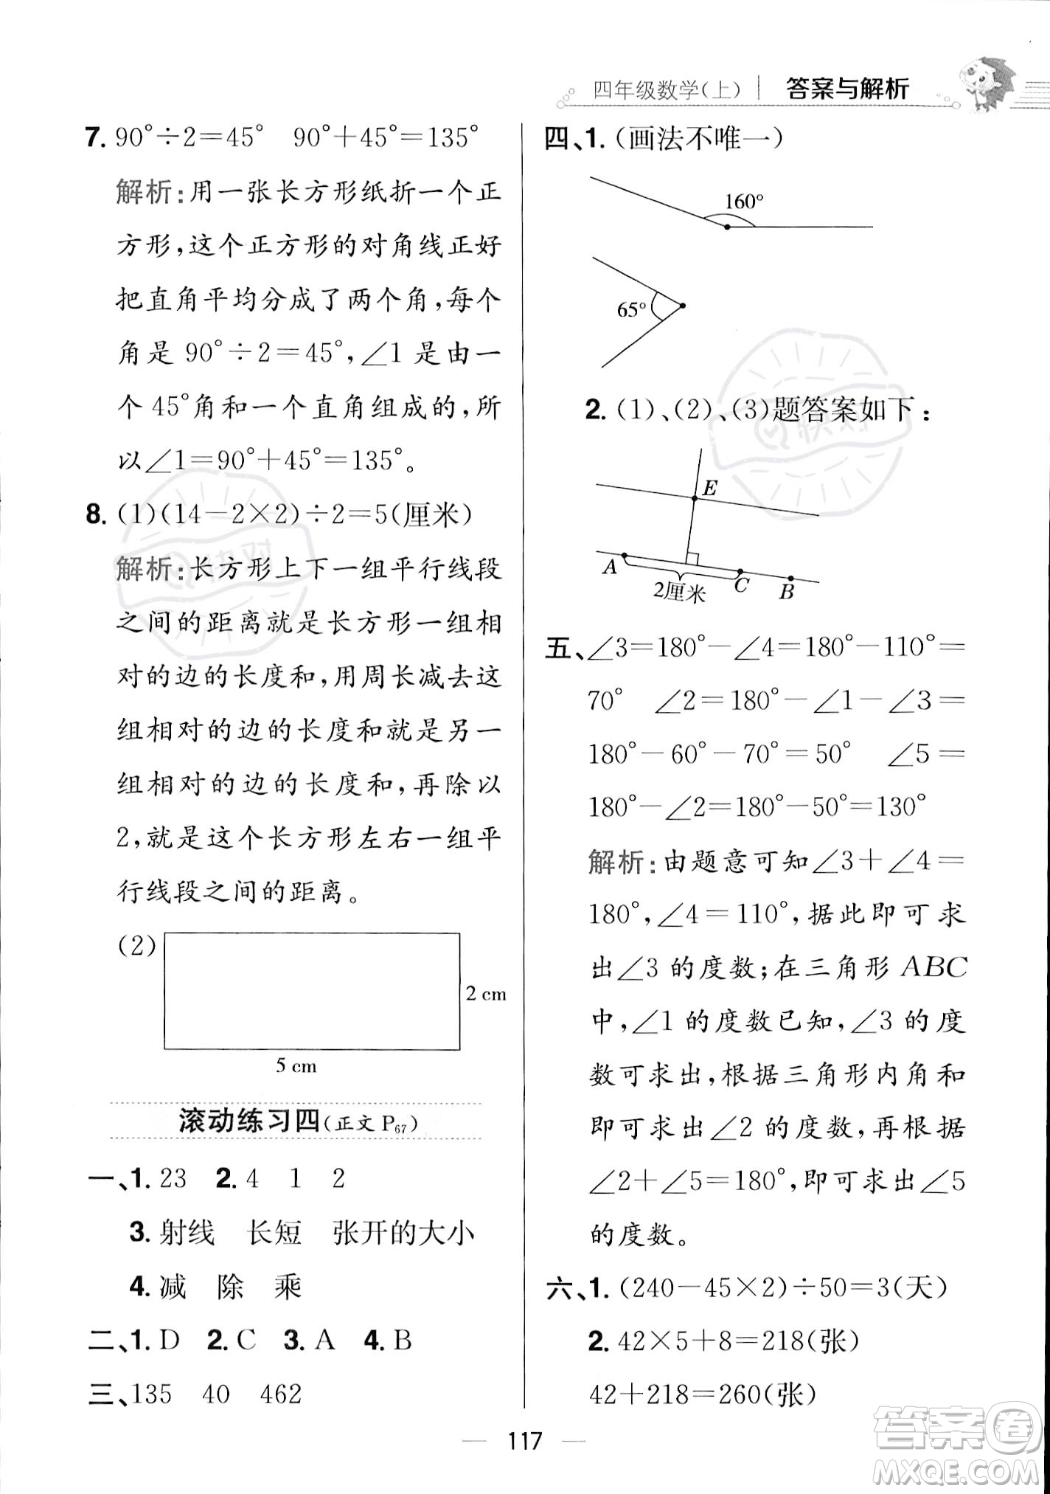 四年级数学(上) 答案与解析
7. 90°÷2=45° 90°+45°=135°
解析:用一张长方形纸折一个正
方形,这个正方形的对角线正好
把直角平均分成了两个角,每个
角是 90°÷2=45°,∠1 是由一
个 45°角和一个直角组成的,所
以∠1=90°+45°=135°。
8. (1)(14-2×2)÷2=5(厘米)
解析:长方形上下一组平行线段
之间的距离就是长方形一组相
对的边的长度和,用周长减去这
组相对的边的长度和就是另一
组相对的边的长度和,再除以
2,就是这个长方形左右一组平
行线段之间的距离。
(2)
2 cm
5 cm
滚动练习四(正文 P67)
一、1. 23 2. 4 1 2
3. 射线 长短 张开的大小
4. 减 除 乘
二、1. D 2. C 3. A 4. B
三、135 40 462
四、1. (画法不唯一)
160°
65°
2. (1)、(2)、(3)题答案如下:
E
A
2厘米
C
B
五、∠3=180°-∠4=180°-110°=
70° ∠2=180°-∠1-∠3=
180°-60°-70°=50° ∠5=
180°-∠2=180°-50°=130°
解析:由题意可知∠3+∠4=
180°,∠4=110°,据此即可求
出∠3 的度数;在三角形 ABC
中,∠1 的度数已知,∠3 的度
数可求出,根据三角形内角和
即可求出∠2 的度数,再根据
∠2+∠5=180°,即可求出∠5
的度数。
六、1. (240-45×2)÷50=3(天)
2. 42×5+8=218(张)
42+218=260(张)
117
答案卷
MXQE.COM